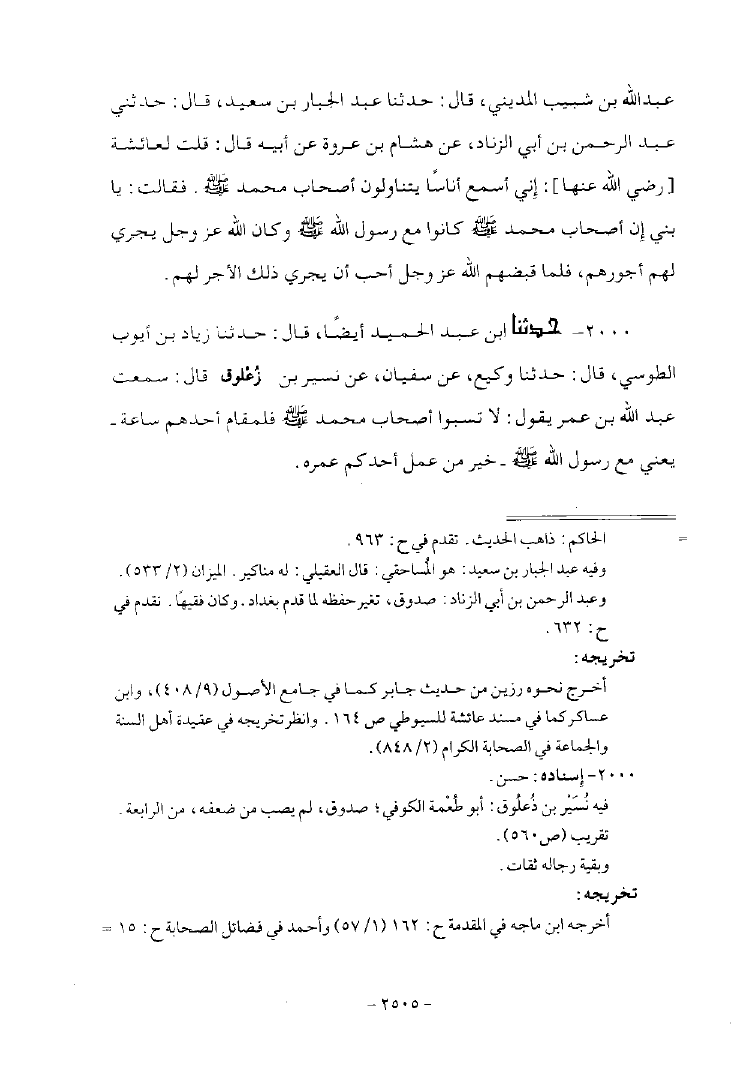 عبدالله بن شبيب المديني، قال: حدثنا عبد الجبار بن سعيد، قال: حدثني
عبد الرحمن بن أبي الزناد، عن هشام بن عروة عن أبيه قال: قلت لعائشة
[رضي الله عنها]: إني أسمع أناسًا يتناولون أصحاب محمد ﷺ. فقالت: يا
بني إن أصحاب محمد ﷺ كانوا مع رسول الله ﷺ وكان الله عز وجل يجري
لهم أجورهم، فلما قبضهم الله عز وجل أحب أن يجري ذلك الأجر لهم.
٢٠٠٠ـ حدثنا ابن عبد الحميد أيضًا، قال: حدثنا زياد بن أيوب
الطوسي، قال: حدثنا وكيع، عن سفيان، عن نسير بن زُعْلوق قال: سمعت
عبد الله بن عمر يقول: لا تسبوا أصحاب محمد ﷺ فلمقام أحدهم ساعة ـ
يعني مع رسول الله ﷺ ـ خير من عمل أحدكم عمره.
= الحاكم: ذاهب الحديث. تقدم في ح: ٩٦٣.
وفيه عبد الجبار بن سعيد: هو المُساحقي: قال العقيلي: له مناكير. الميزان (٢/ ٥٣٣).
وعبد الرحمن بن أبي الزناد: صدوق، تغير حفظه لما قدم بغداد. وكان فقيهًا. تقدم في
ح: ٦٣٢.
تخريجه:
أخرج نحوه رزين من حديث جابر كما في جامع الأصول (٩/ ٤٠٨)، وابن
عساكر كما في مسند عائشة للسيوطي ص ١٦٤. وانظر تخريجه في عقيدة أهل السنة
والجماعة في الصحابة الكرام (٢/ ٨٤٨).
٢٠٠٠- إسناده: حسن.
فيه نُسَيْر بن ذُعلُوق: أبو طُعْمة الكوفي؛ صدوق، لم يصب من ضعفه، من الرابعة.
تقريب (ص٥٦٠).
وبقية رجاله ثقات.
تخريجه:
أخرجه ابن ماجه في المقدمة ح: ١٦٢ (١/ ٥٧) وأحمد في فضائل الصحابة ح: ١٥ =
- ٢٥٠٥ -